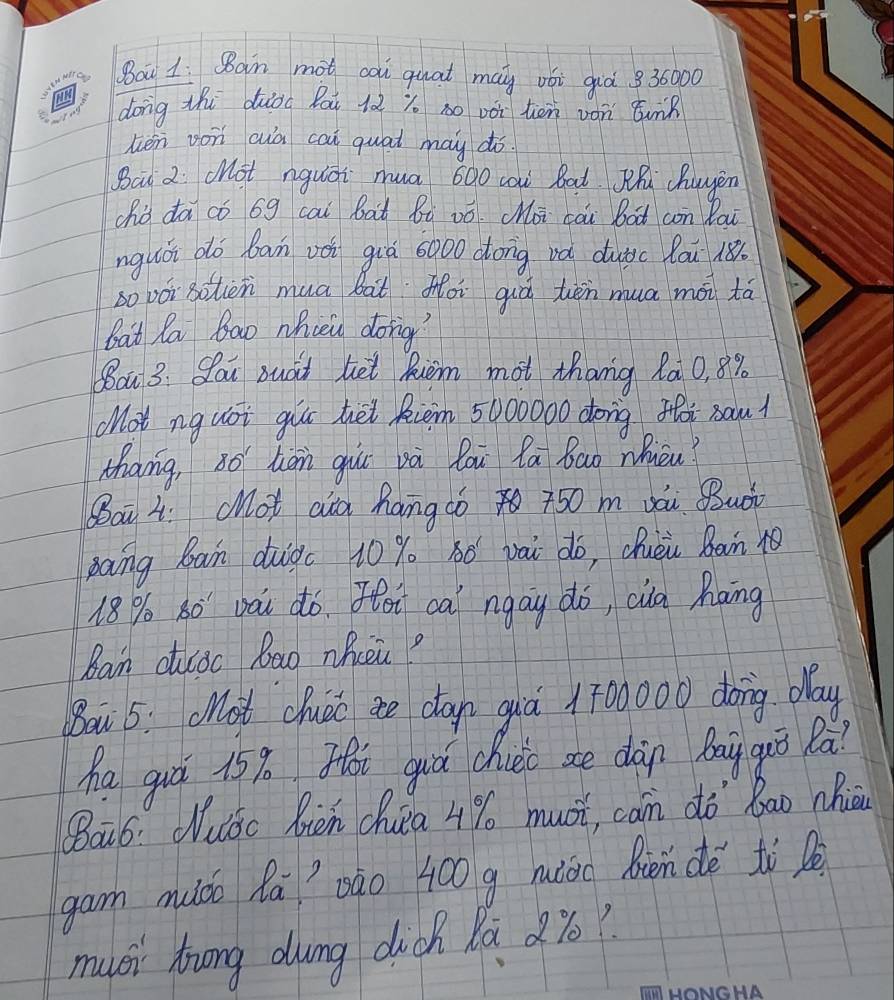 Bài 1: Bán một cái quạt máy với giá 336000
đồng thì được lãi 12 % so với tiền vốn tính
tiền vốn của cái quạt máy đó.
Bài 2: Một người mua 600 cái bát. Khi chuyên
chở đã có 69 cái bát bị vỡ. Mỗi cái bát còn lại
người đó bán với giá 6000 đồng và được lãi 18%
so với số tiền mua bát. Hỏi giá tiền mua mỗi tá
bát là bao nhiêu đồng?
Bài 3: Lãi suất tiết kiệm một tháng là 0,8%
Một người gửi tiết kiệm 5000000 đồng. Hỏi sau 1
tháng, số tiền gửi và lãi là bao nhiêu?
Bài 4: Một cửa hàng có 750 m vải. Buổi
sáng bán được 10% số vải đó, chiều bán
18% số vải đó. Hỏi cả ngày đó, cửa hàng
bán được bao nhiêu?
Bài 5: Một chiếc xe đạp giá 1700000 đồng. Nay
hạ giá 15%. Hỏi giá chiếc xe đạp bây giờ là?
Bài 6: Nước biển chứa 4% muối, cần đổ bao nhiêu
gam nước lã? vào 400 g nước biển để tỉ lệ
muối trong dung dịch là 2%?
HONG HA